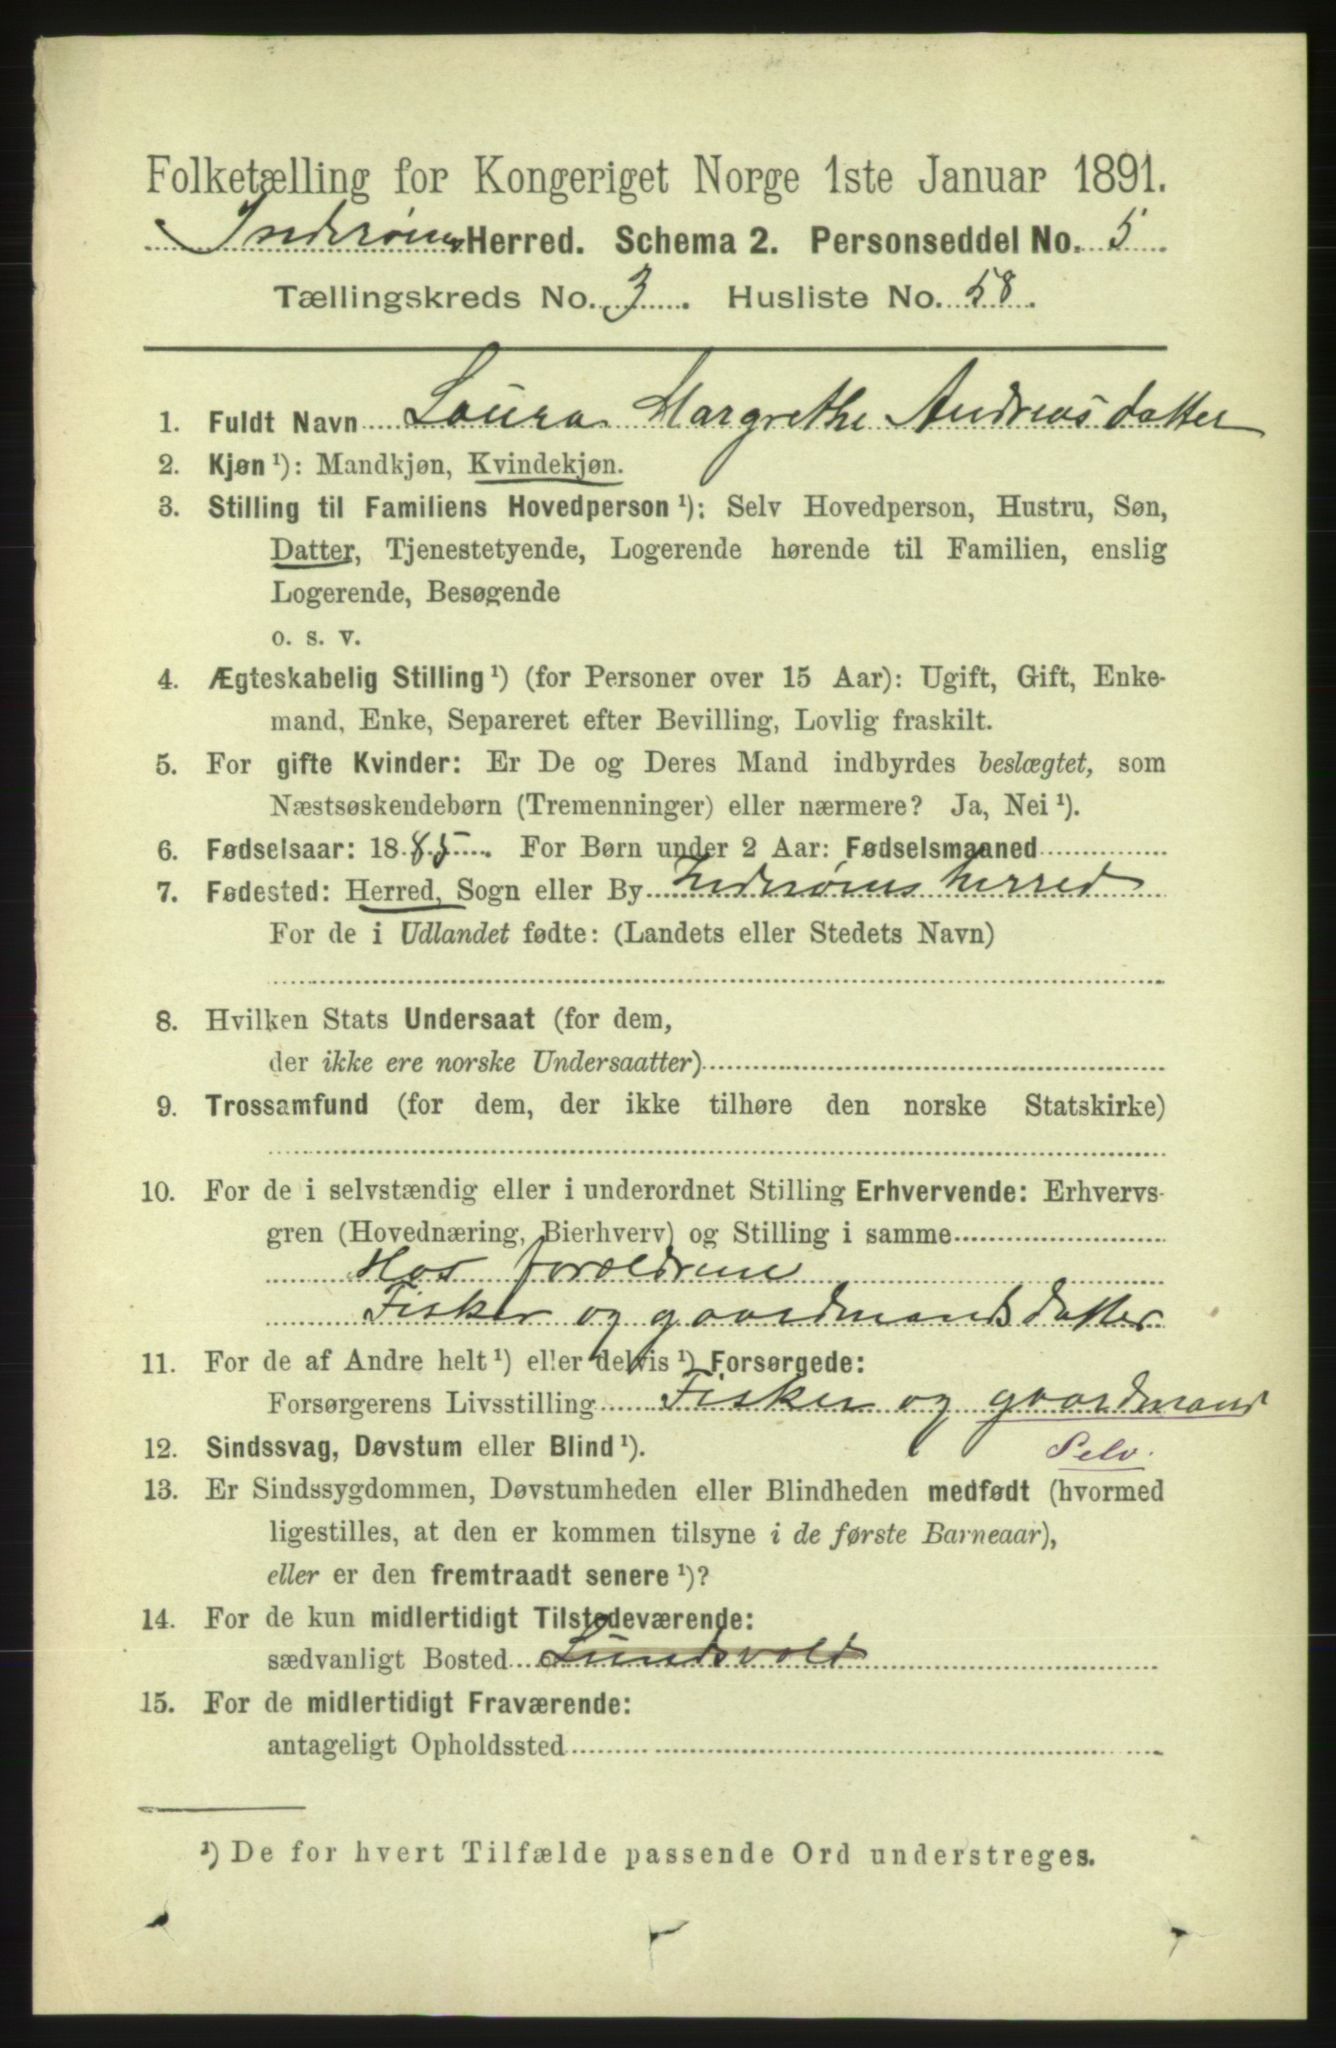 Folketælling for Kongeriget Norge 1ste Januar 1891.
Inderøens Herred. Schema 2. Personseddel No. 5.
Tællingskreds No. 3. Husliste No. 58.
1. Fuldt Navn Laura Margrethe Andreasdatter
2. Kjøn ¹): Mandkjøn, Kvindekjøn.
3. Stilling til Familiens Hovedperson ¹): Selv Hovedperson, Hustru, Søn,
Datter, Tjenestetyende, Logerende hørende til Familien, enslig
Logerende, Besøgende
o. s. v.
4. Ægteskabelig Stilling ¹) (for Personer over 15 Aar): Ugift, Gift, Enke-
mand, Enke, Separeret efter Bevilling, Lovlig fraskilt.
5. For gifte Kvinder: Er De og Deres Mand indbyrdes beslægtet, som
Næstsøskendebørn (Tremenninger) eller nærmere? Ja, Nei ¹).
6. Fødselsaar: 1885. For Børn under 2 Aar: Fødselsmaaned
7. Fødested: Herred, Sogn eller By Inderøens herred
For de i Udlandet fødte: (Landets eller Stedets Navn)
8. Hvilken Stats Undersaat (for dem,
der ikke ere norske Undersaatter)
9. Trossamfund (for dem, der ikke tilhøre den norske Statskirke)
10. For de i selvstændig eller i underordnet Stilling Erhvervende: Erhvervs-
gren (Hovednæring, Bierhverv) og Stilling i samme
Hos forældrene
Fisker og gaardmands datter
11. For de af Andre helt ¹) eller delvis ¹) Forsørgede:
Forsørgerens Livsstilling Fisker og gaardmand
Selv.
12. Sindssvag, Døvstum eller Blind ¹).
13. Er Sindssygdommen, Døvstumheden eller Blindheden medfødt (hvormed
ligestilles, at den er kommen tilsyne i de første Barneaar),
eller er den fremtraadt senere ¹)?
14. For de kun midlertidigt Tilstedeværende:
sædvanligt Bosted Lundsvold
15. For de midlertidigt Fraværende:
antageligt Opholdssted
¹) De for hvert Tilfælde passende Ord understreges.